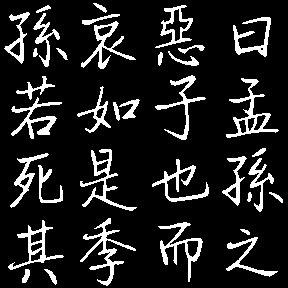 曰孟孫之
惡子也而
哀如是季
孫若死其